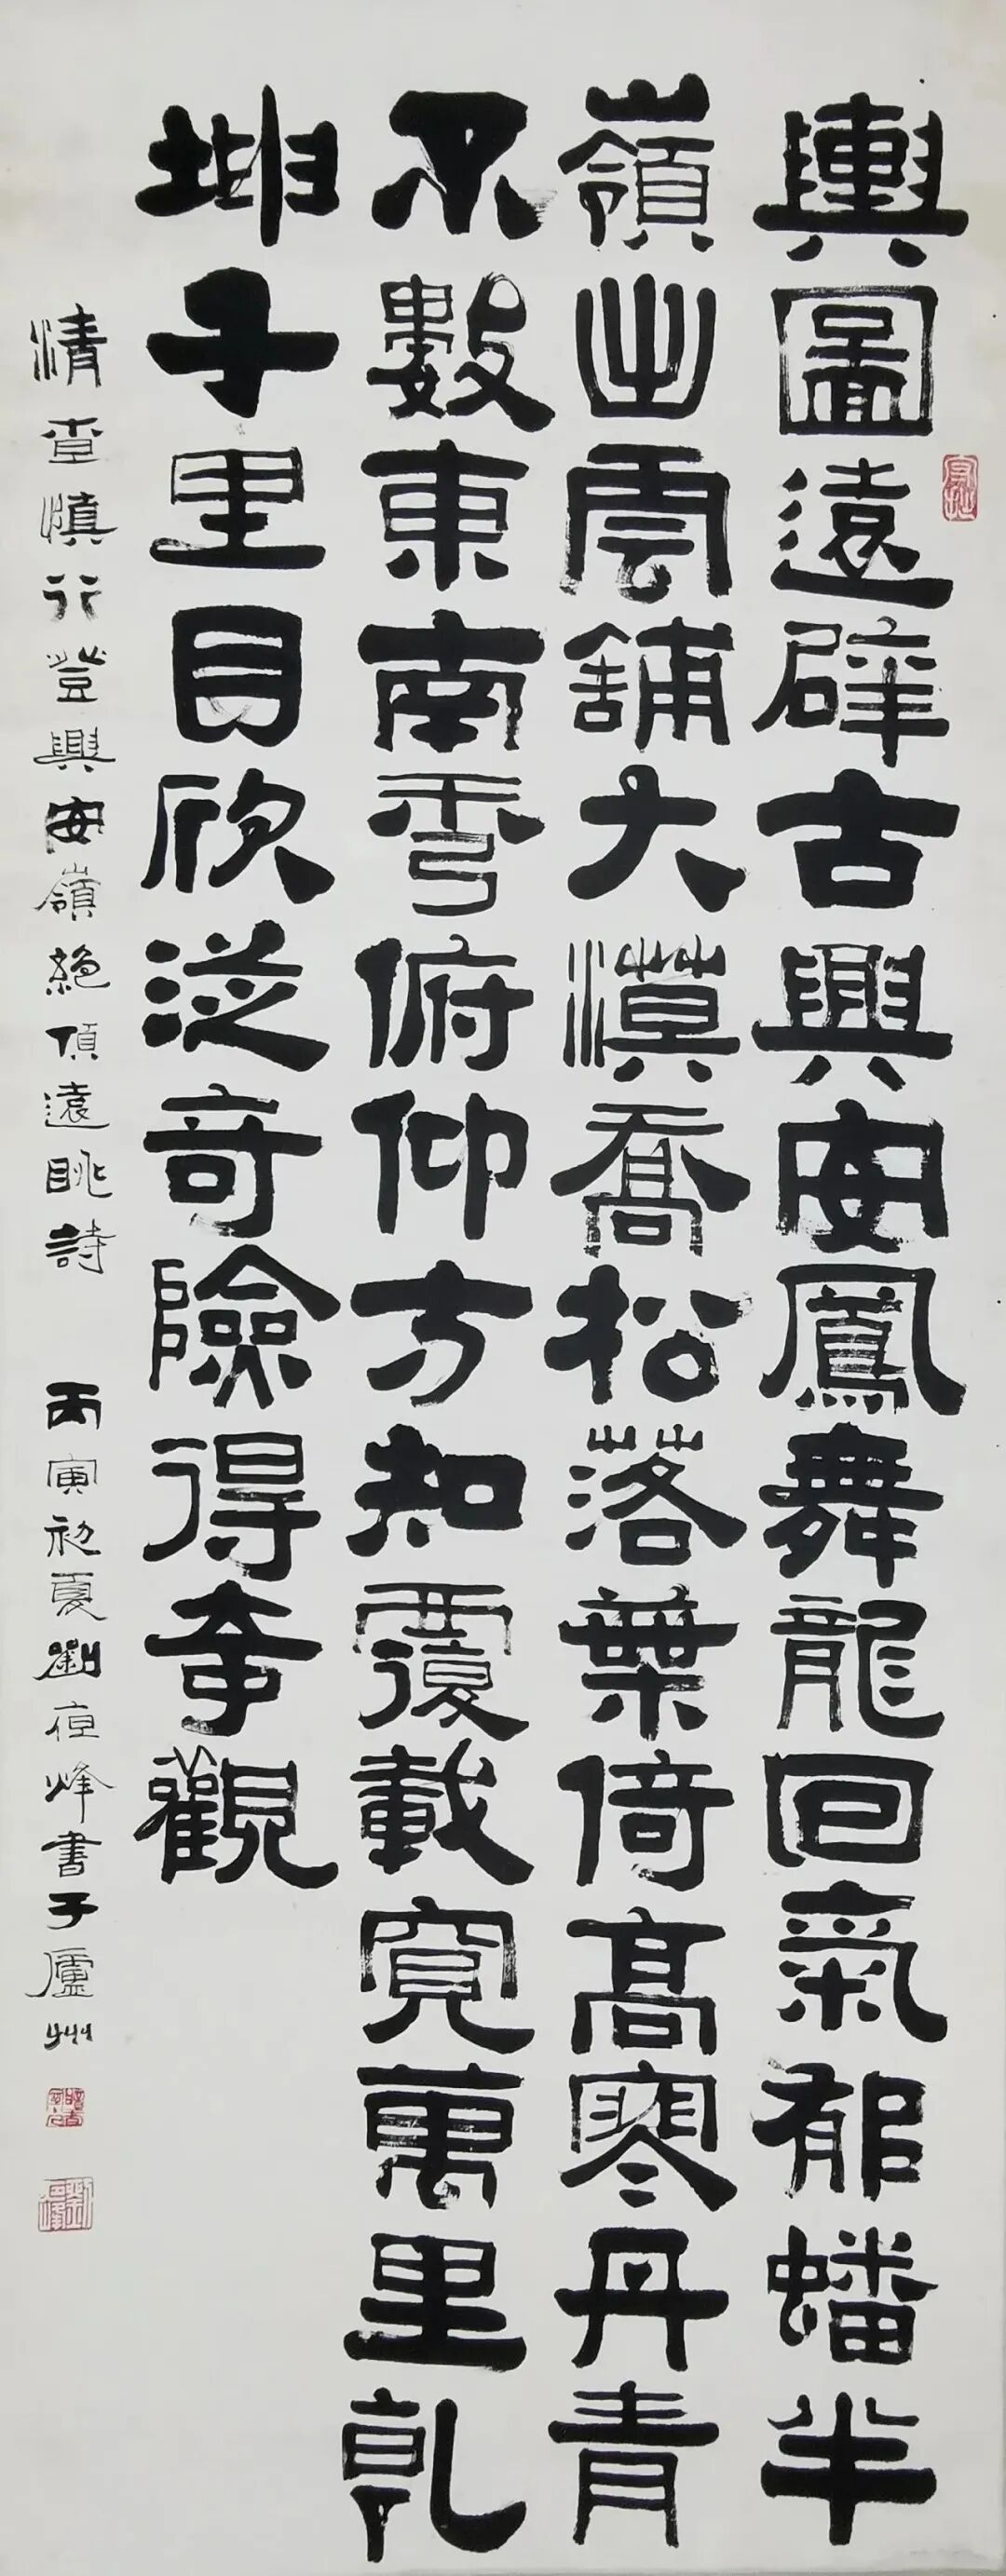 輿圖遠辟古興安鳳舞龍回氣郁蟠半
嶺出雲舖大漠喬松落葉倚高寒丹青
不數東南秀俯仰方知覆載寬萬里乾
坤千里目欣從奇險得奇觀
清查慎行登興安嶺絕頂遠眺詩 丙寅初夏劉夜烽書于廬州